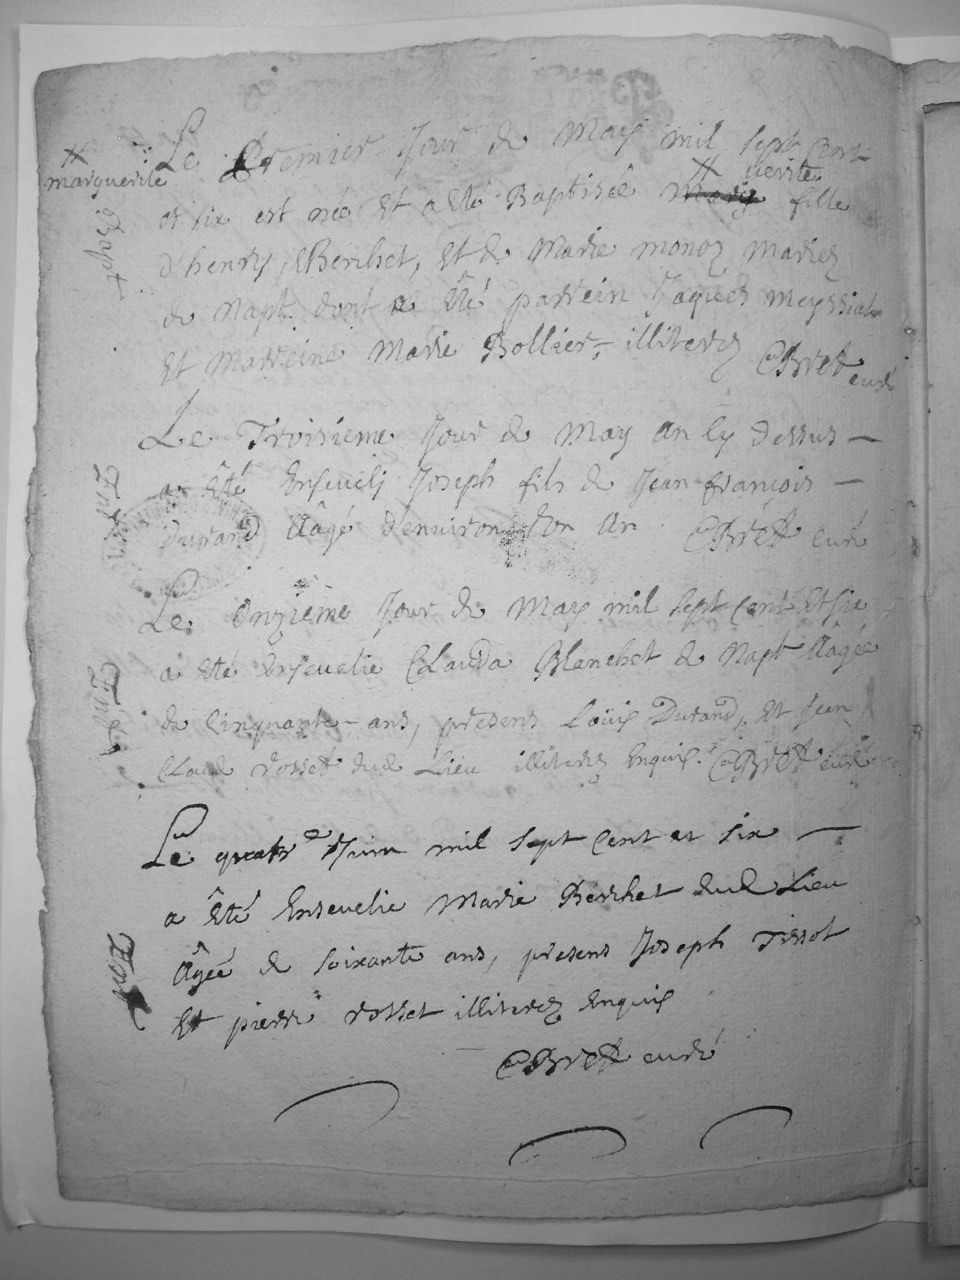 Le Premier Jour de May mil sept Cent
Marguerite
Bapt
uerite
et six est née Et a Eté Baptisée Marg fille
d'henry Berchet, Et de Marie monoz Mariez
de Napt. dont a Eté parrein Jaques meyssiat
Et Marreine Marie Bollier, illiterez CBrett curé
Le Troisieme Jour de May an Cy dessus
a Eté Ensevely Joseph fils de Jean francois
Durand âagé denviron un An CBrett curé
Le Onzieme Jour de May mil sept Cent Et six
a Eté Ensevelie Clauda Blanchet de Napt âagée
de Cinquante ans, presens Loüis Durand, Et Jean
Claude rosset dud Lieu illiterez Enquis. CBrett curé
Le quatre Juin mil sept Cent et six
a Eté Ensevelie Marie Berchet dud Lieu
âgée de soixante ans, presens Joseph Tissot
Et pierre rosset illiterez Enquis
CBrett curé